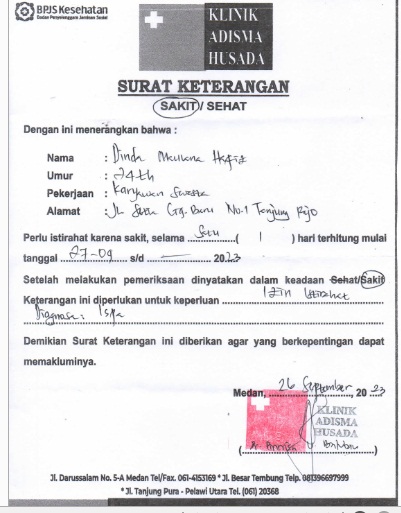 BPJS Kesehatan
Badan Penyelenggara Jaminan Sosial
KLINIK
ADISMA
HUSADA
SURAT KETERANGAN
SAKIT / SEHAT
Dengan ini menerangkan bahwa :
Nama : Dinda Maulana Hafiz
Umur : 24 th
Pekerjaan : Karyawan Swasta
Alamat : Jl. Gg. Baru No.1 Tanjung Rejo
Perlu istirahat karena sakit, selama Satu ( 1 ) hari terhitung mulai
tanggal 27-09 s/d — 2023
Setelah melakukan pemeriksaan dinyatakan dalam keadaan Sehat/Sakit
Keterangan ini diperlukan untuk keperluan Izin Istirahat
Diagnosa : Ispa
Demikian Surat Keterangan ini diberikan agar yang berkepentingan dapat
memakluminya.
Medan, 26 September, 2023
KLINIK
ADISMA
HUSADA
Jl. Darussalam No. 5-A Medan Tel/Fax. 061-4153169 * Jl. Besar Tembung Telp. 081396697999
* Jl. Tanjung Pura - Pelawi Utara Tel. (061) 20368